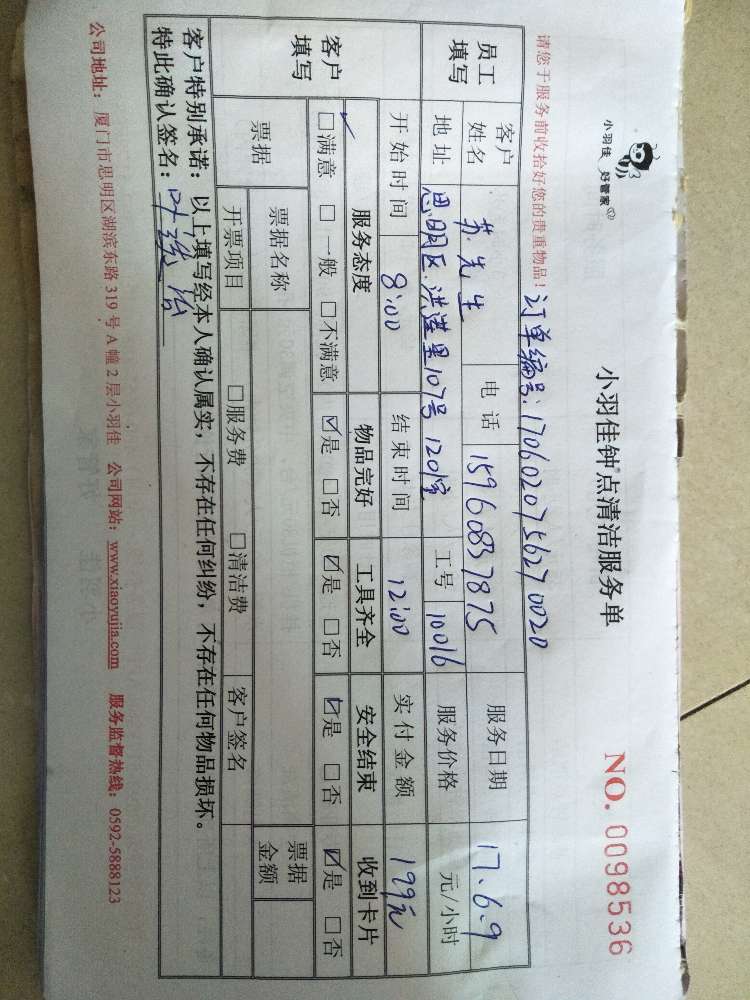 小羽佳 好管家
小羽佳钟点清洁服务单
NO. 0098536
请您于服务前收拾好您的贵重物品！
订单编号：1706020756270020
员工填写
客户姓名 苏先生 电话 15960837875 服务日期 17.6.9
地址 思明区洪莲里107号1201室 工号 10016 服务价格 元/小时
开始时间 8:00 结束时间 12:00 实付金额 199元
客户填写
服务态度 物品完好 工具齐全 安全结束 收到卡片
✓ □满意 □一般 □不满意 ☑是 □否 ☑是 □否 ☑是 □否 ☑是 □否
票据 票据名称 票据金额
开票项目 □服务费 □清洁费 客户签名
客户特别承诺：以上填写经本人确认属实，不存在任何纠纷，不存在任何物品损坏。
特此确认签名：
公司地址：厦门市思明区湖滨东路319号A幢2层小羽佳 公司网站：www.xiaoyujia.com 服务监督热线：0592-5888123